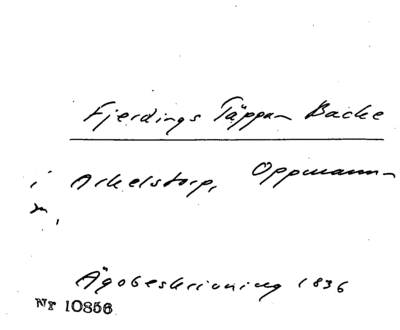 Fjerdings Täppan Backe
i Arkelstorp, Oppmanna
Ägobeskrivning 1836
Nr 10856